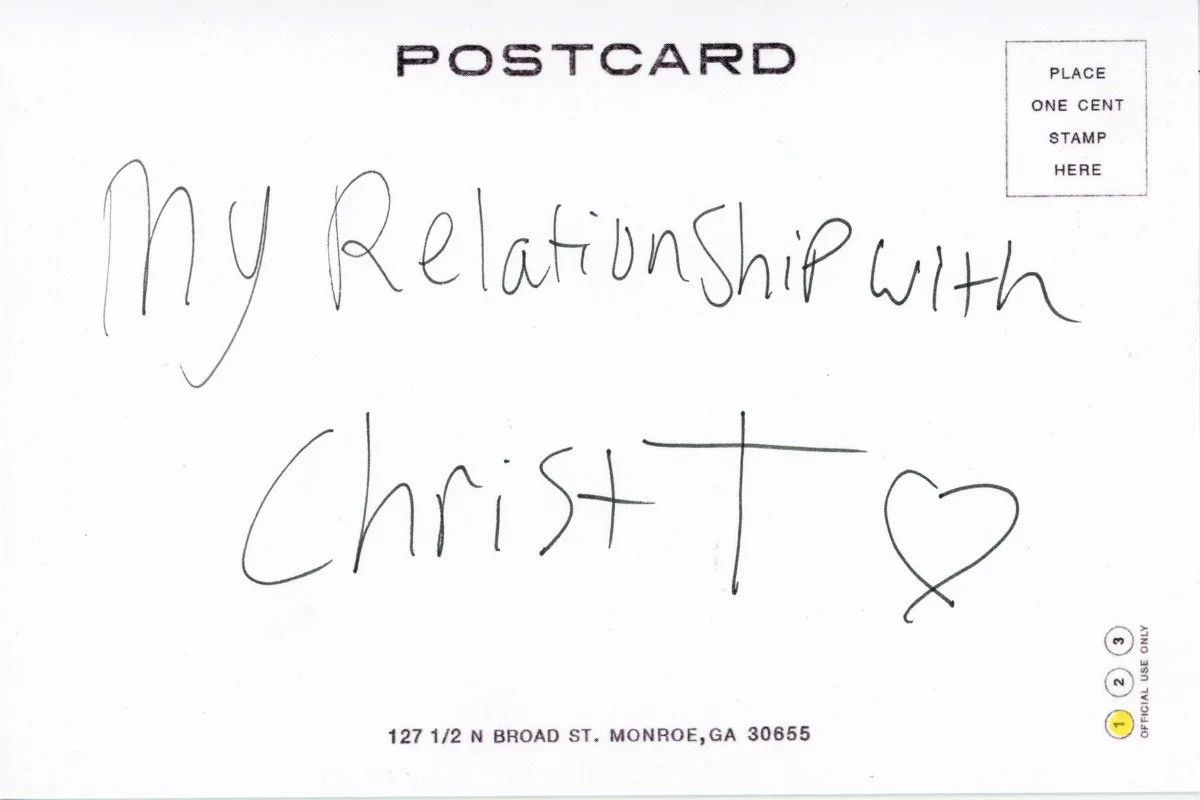 POSTCARD
PLACE
ONE CENT
STAMP
HERE
My Relationship with
Christ
127 1/2 N BROAD ST. MONROE,GA 30655
1 2 3
OFFICIAL USE ONLY